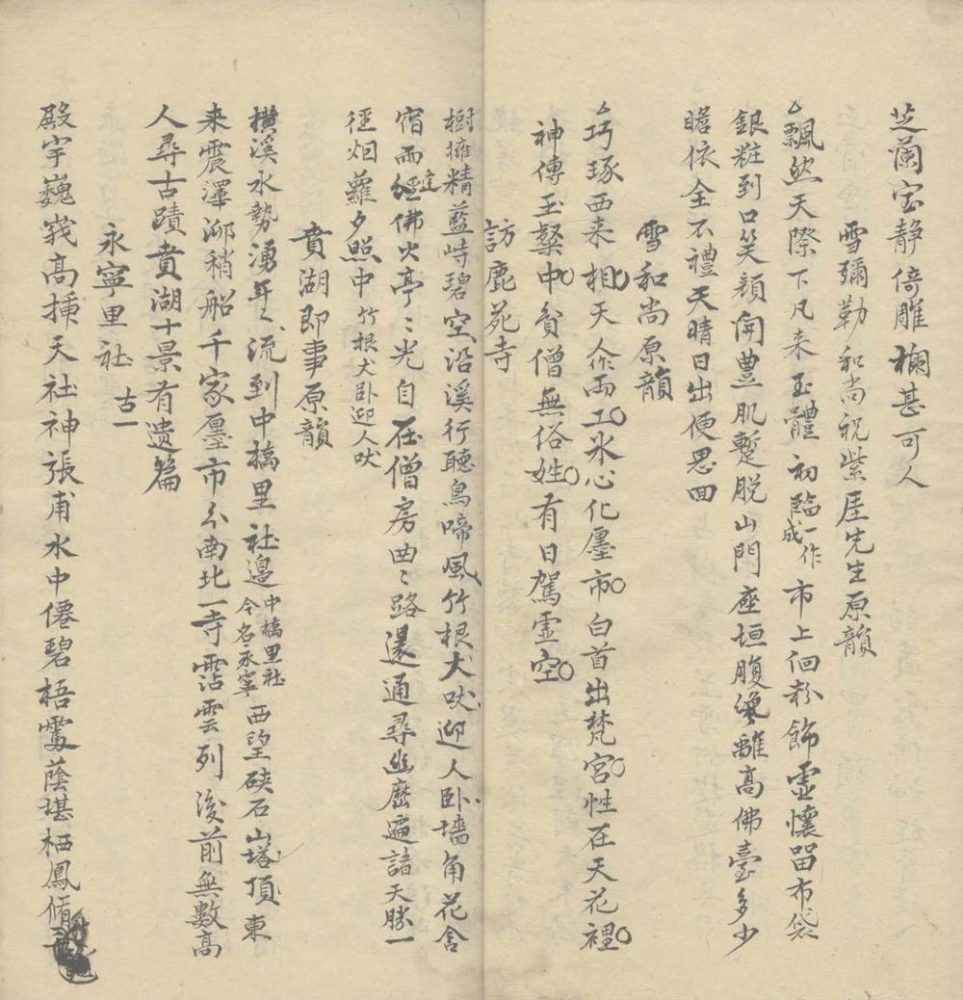 芝蘭室静倚雕欄甚可人
雪彌勒和尚祝紫厓先生原韻
飄然天際下凡来玉體初臨一作成市上佪粉飾虛懷留布袋
銀粧到口笑顔開豊肌蹔脱山門座垣腹纔離高佛臺多少
瞻依全不禮天晴日出便思回
雪和尚原韻
巧琢西来相天人作兩工氷心化廛市白首出梵宮性在天花裡
神傳玉粲中貧僧無俗姓有日駕霊空
訪鹿苑寺
樹擁精藍峙碧空沿溪行聽鳥啼風竹根犬吠迎人卧墻角花含
宿雨縫佛火亭〻光自在僧房曲〻路還通尋幽歷遍諸天勝一
徑烟蘿夕照中竹根犬卧迎人吠
賁湖即事原韻
横溪水勢湧年〻流到中橋里社邉中橋里社今名永寧西望硖石山塔頂東
来震澤泖稍船千家廛市分南北一寺霑雲列後前無數高
人尋古蹟賁湖十景有遗篇
永寧里社 古一
殿宇巍峩髙揷天社神張甫水中僊碧梧霻蔭堪栖鳳脩